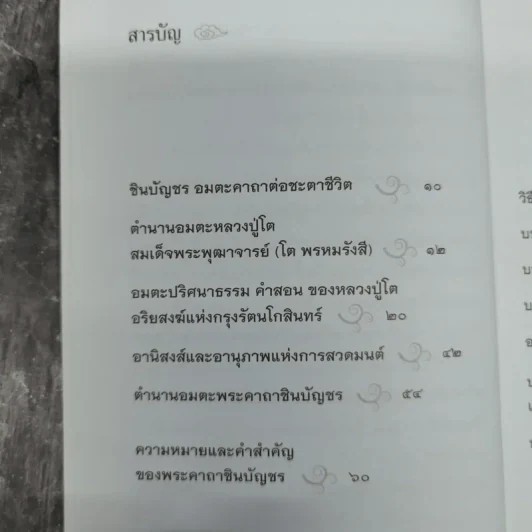 สารบัญ
ชินบัญชร อมตะคาถาต่อชะตาชีวิต ๑๐
ตำนานอมตะหลวงปู่โต
สมเด็จพระพุฒาจารย์ (โต พรหมรังสี) ๑๒
อมตะปริศนาธรรม คำสอน ของหลวงปู่โต
อริยสงฆ์แห่งกรุงรัตนโกสินทร์ ๒๐
อานิสงส์และอานุภาพแห่งการสวดมนต์ ๔๒
ตำนานอมตะพระคาถาชินบัญชร ๕๔
ความหมายและคำสำคัญ
ของพระคาถาชินบัญชร ๖๐